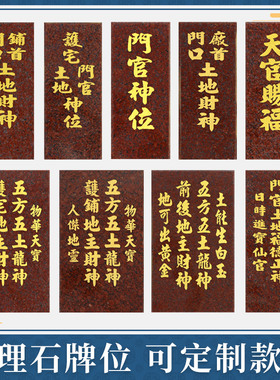 鋪首
門口土地財神
護宅
土地
門官
神位
門官神位
廠首
門口土地財神
天官賜福
物華天寶
五方五土龍神
護宅地主財神
物華天寶
五方五土龍神
護鋪地主財神
人傑地靈
土能生白玉
五方五土龍神
前後地主財神
地可出黃金
門官土地福德正神
日時進寶仙官
理石牌位 可定制款